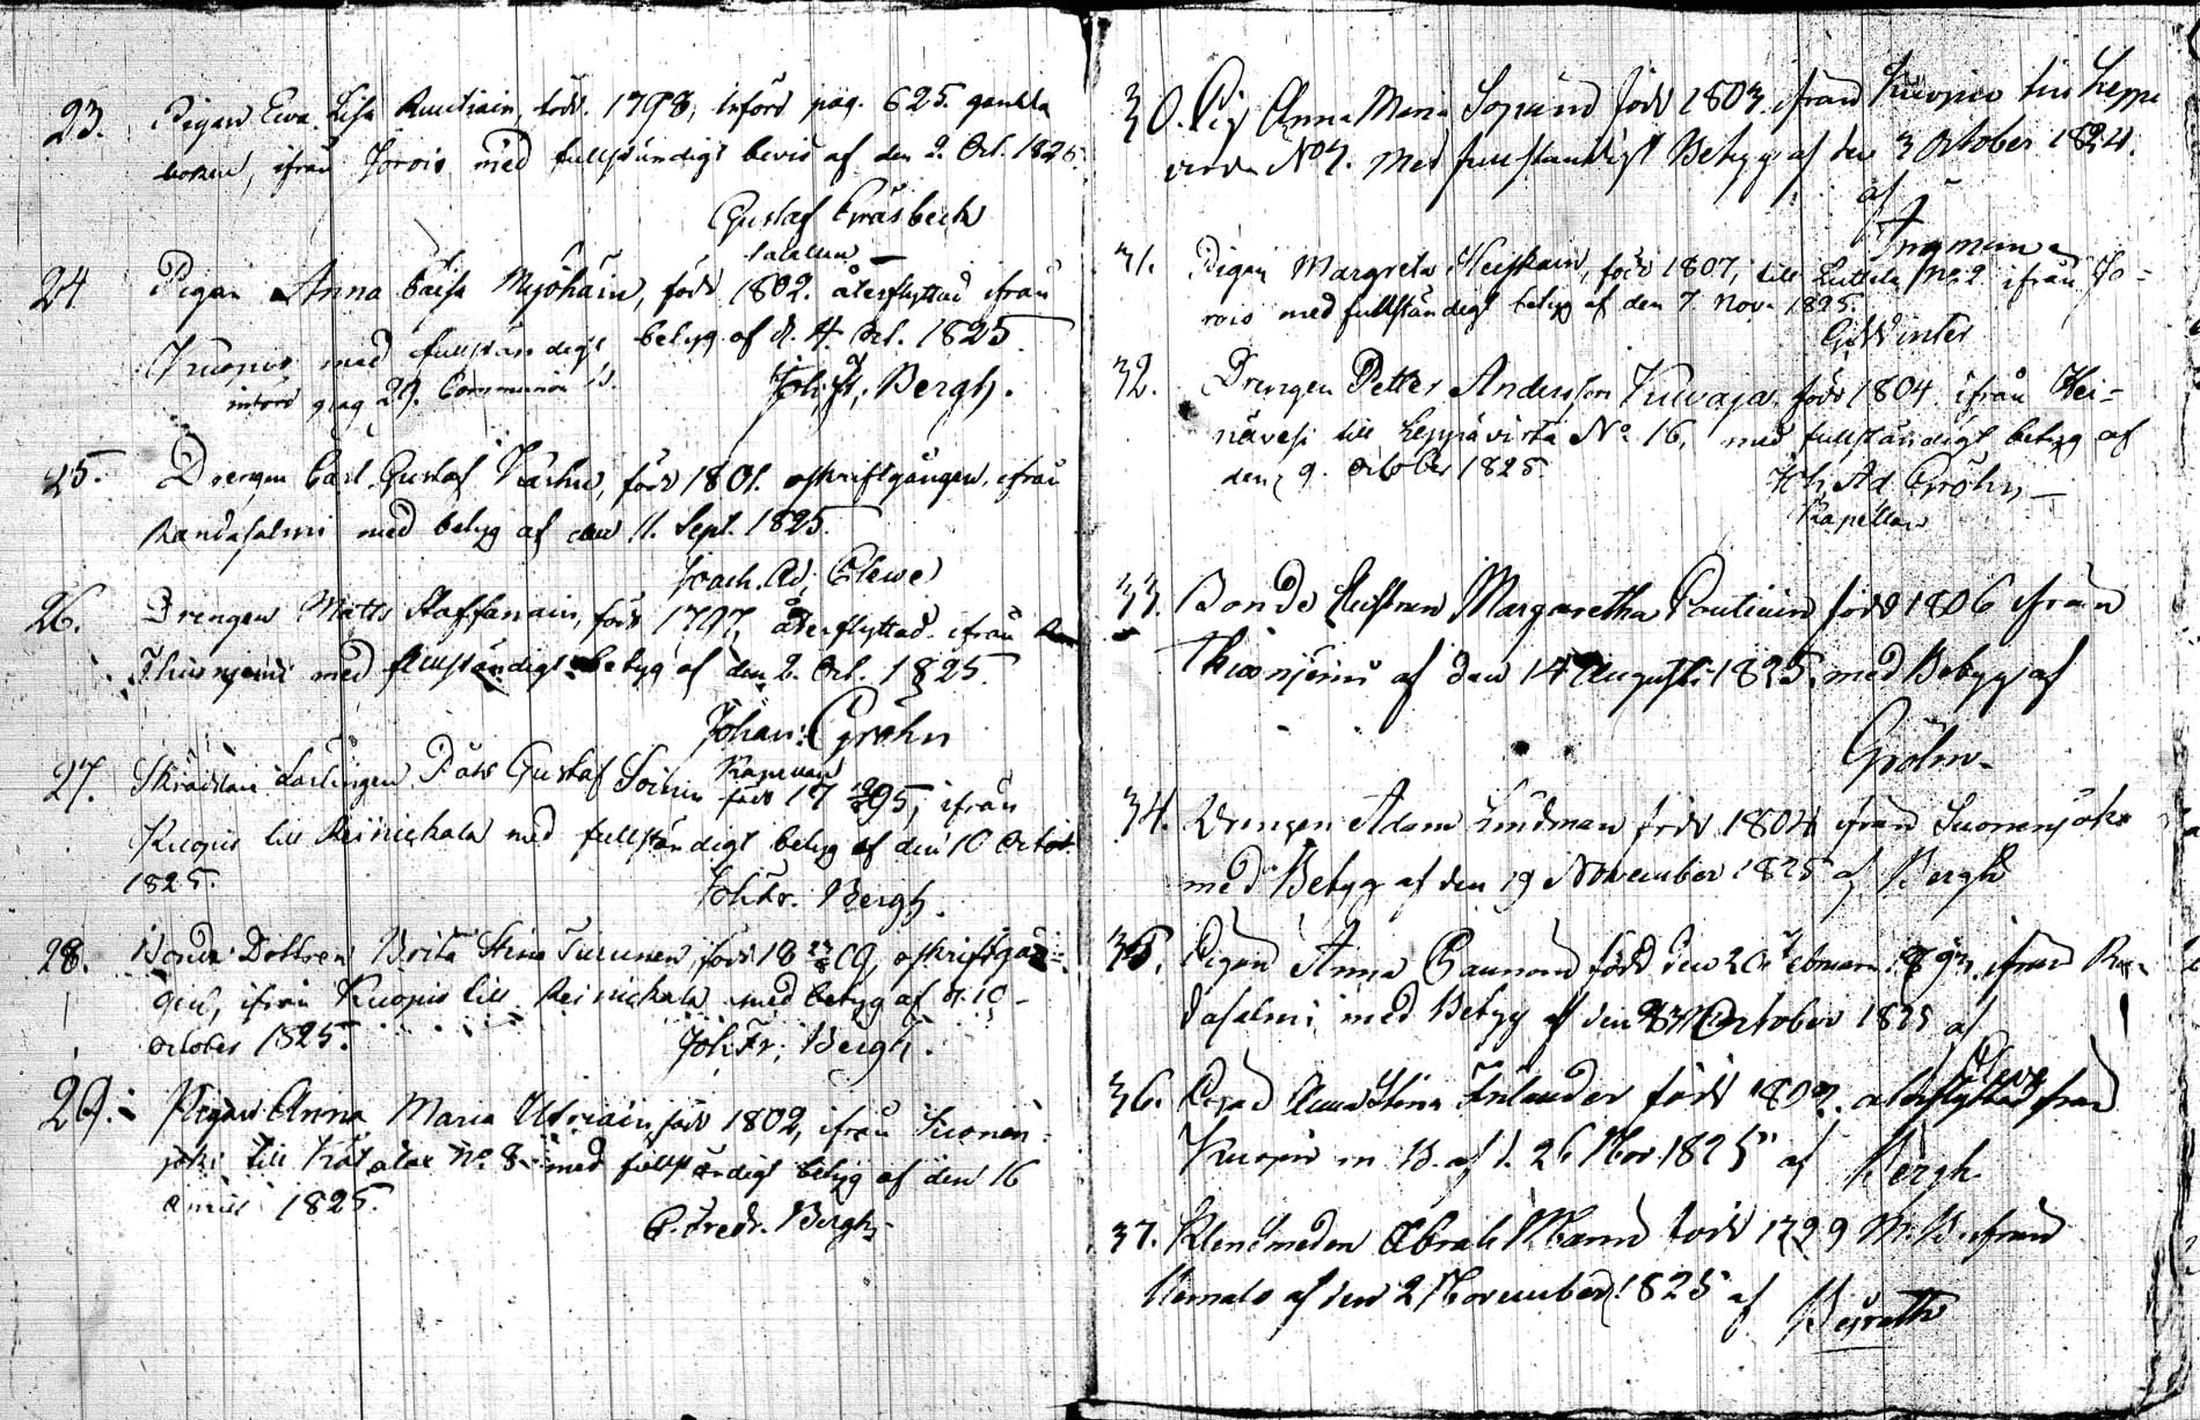 23. Pigan Ewa Lisa Rautiain, född. 1798, införd pag. 625. gamla
boken, ifrån Jorois med fullständigt bevis af den 2. Oct. 1825.
Gustaf Gråsbeck
24 Pigan Anna Caisa Myöhäin, född 1802. återflyttad ifrån
Kuopio med fullständigt betyg af d. 4. Oct. 1825.
införd pag 29. Communion B. Joh. Fr. Bergh.
25. Drengen Carl Gustaf Karhu, född 1801. oskriftgången, ifrån
Randasalmi med betyg af den 11. Sept. 1825.
Joach. Ad. Cleve
26. Drengen Matts Staffanain, född 1797, återflyttad ifrån
Thusnjemi med fullständigt betyg af den 2. Oct. 1825.
Johan: Gröhn
Kapellan
27. Skräddare Lärlingen Påhl Gustaf Soinin född 17 95, ifrån
Kuopio till Reinikala med fullständigt betyg af den 10 October
1825.
Joh Fr. Bergh.
28. Bonde Dottren Brita Stina Turunen, född 18 09, oskriftgån-
gen, ifrån Kuopio till Reinikala med betyg af d. 10
October 1825.
Joh Fr. Bergh.
29. Pigan Anna Maria Utriain, född 1802, ifrån Suonen-
joki till No. 8 med fullständigt betyg af den 16
1825.
C. Fredr. Bergh
30. Pig Anna Maria född 1803 ifrån Kuopio till Leppe
virda No 7. Med fullständigt Betyg af den 3 October 1824.
af
Ingman
31. Pigan Margreta Heiskain, född 1807, till Luttila No. 2 ifrån Jo-
rois med fullständigt betyg af den 7. Nov. 1825.
G. Winter
32. Drengen Petter Andersson Kuvaja född 1804 ifrån Hei-
nävesi till Leppävirta No. 16, med fullständigt betyg af
den 9. October 1825.
Ad. Gröhn
Kapellan
33. Bonde Margaretha Poutiain född 1806 ifrån
Thusnjemi af den 14 Augusti 1825. med Betyg af
Gröhn
34. Drengen Adam Lindman född 1804 ifrån Suonenjoki
med Betyg af den 19 November 1825 af Bergh
35. Pigan Anna född den 20 Februari ifrån Ran-
dasalmi med Betyg af den October 1825 af
Cleve
36. Pigan Anna Stina Inlander född återflyttad från
Kuopio m B. af d. 26 Nov. 1825 af Bergh
37. Klensmeden född 1799 M. B. ifrån
af den 2 November 1825 af